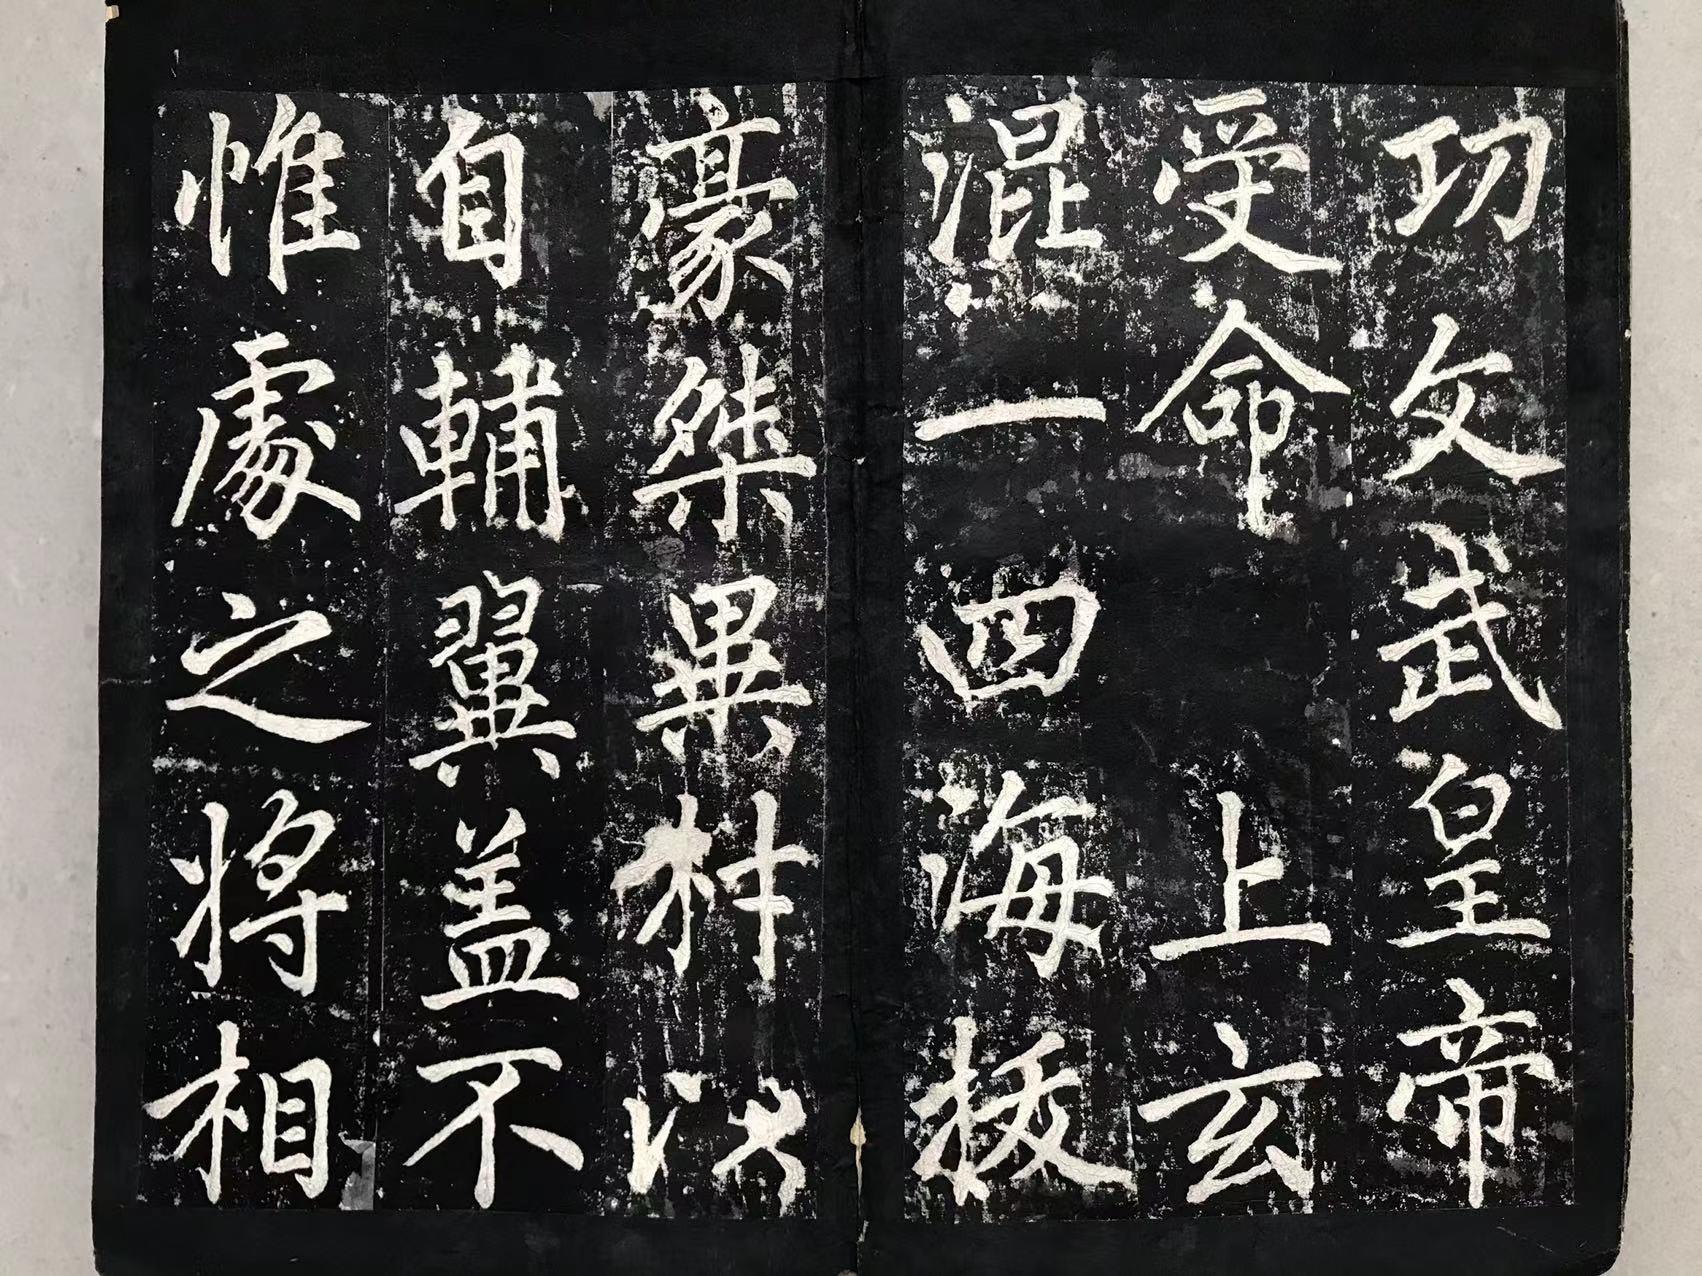 功文武皇帝
受命上玄
混一四海拔
豪桀異材以
自輔翼盖不
惟處之將相